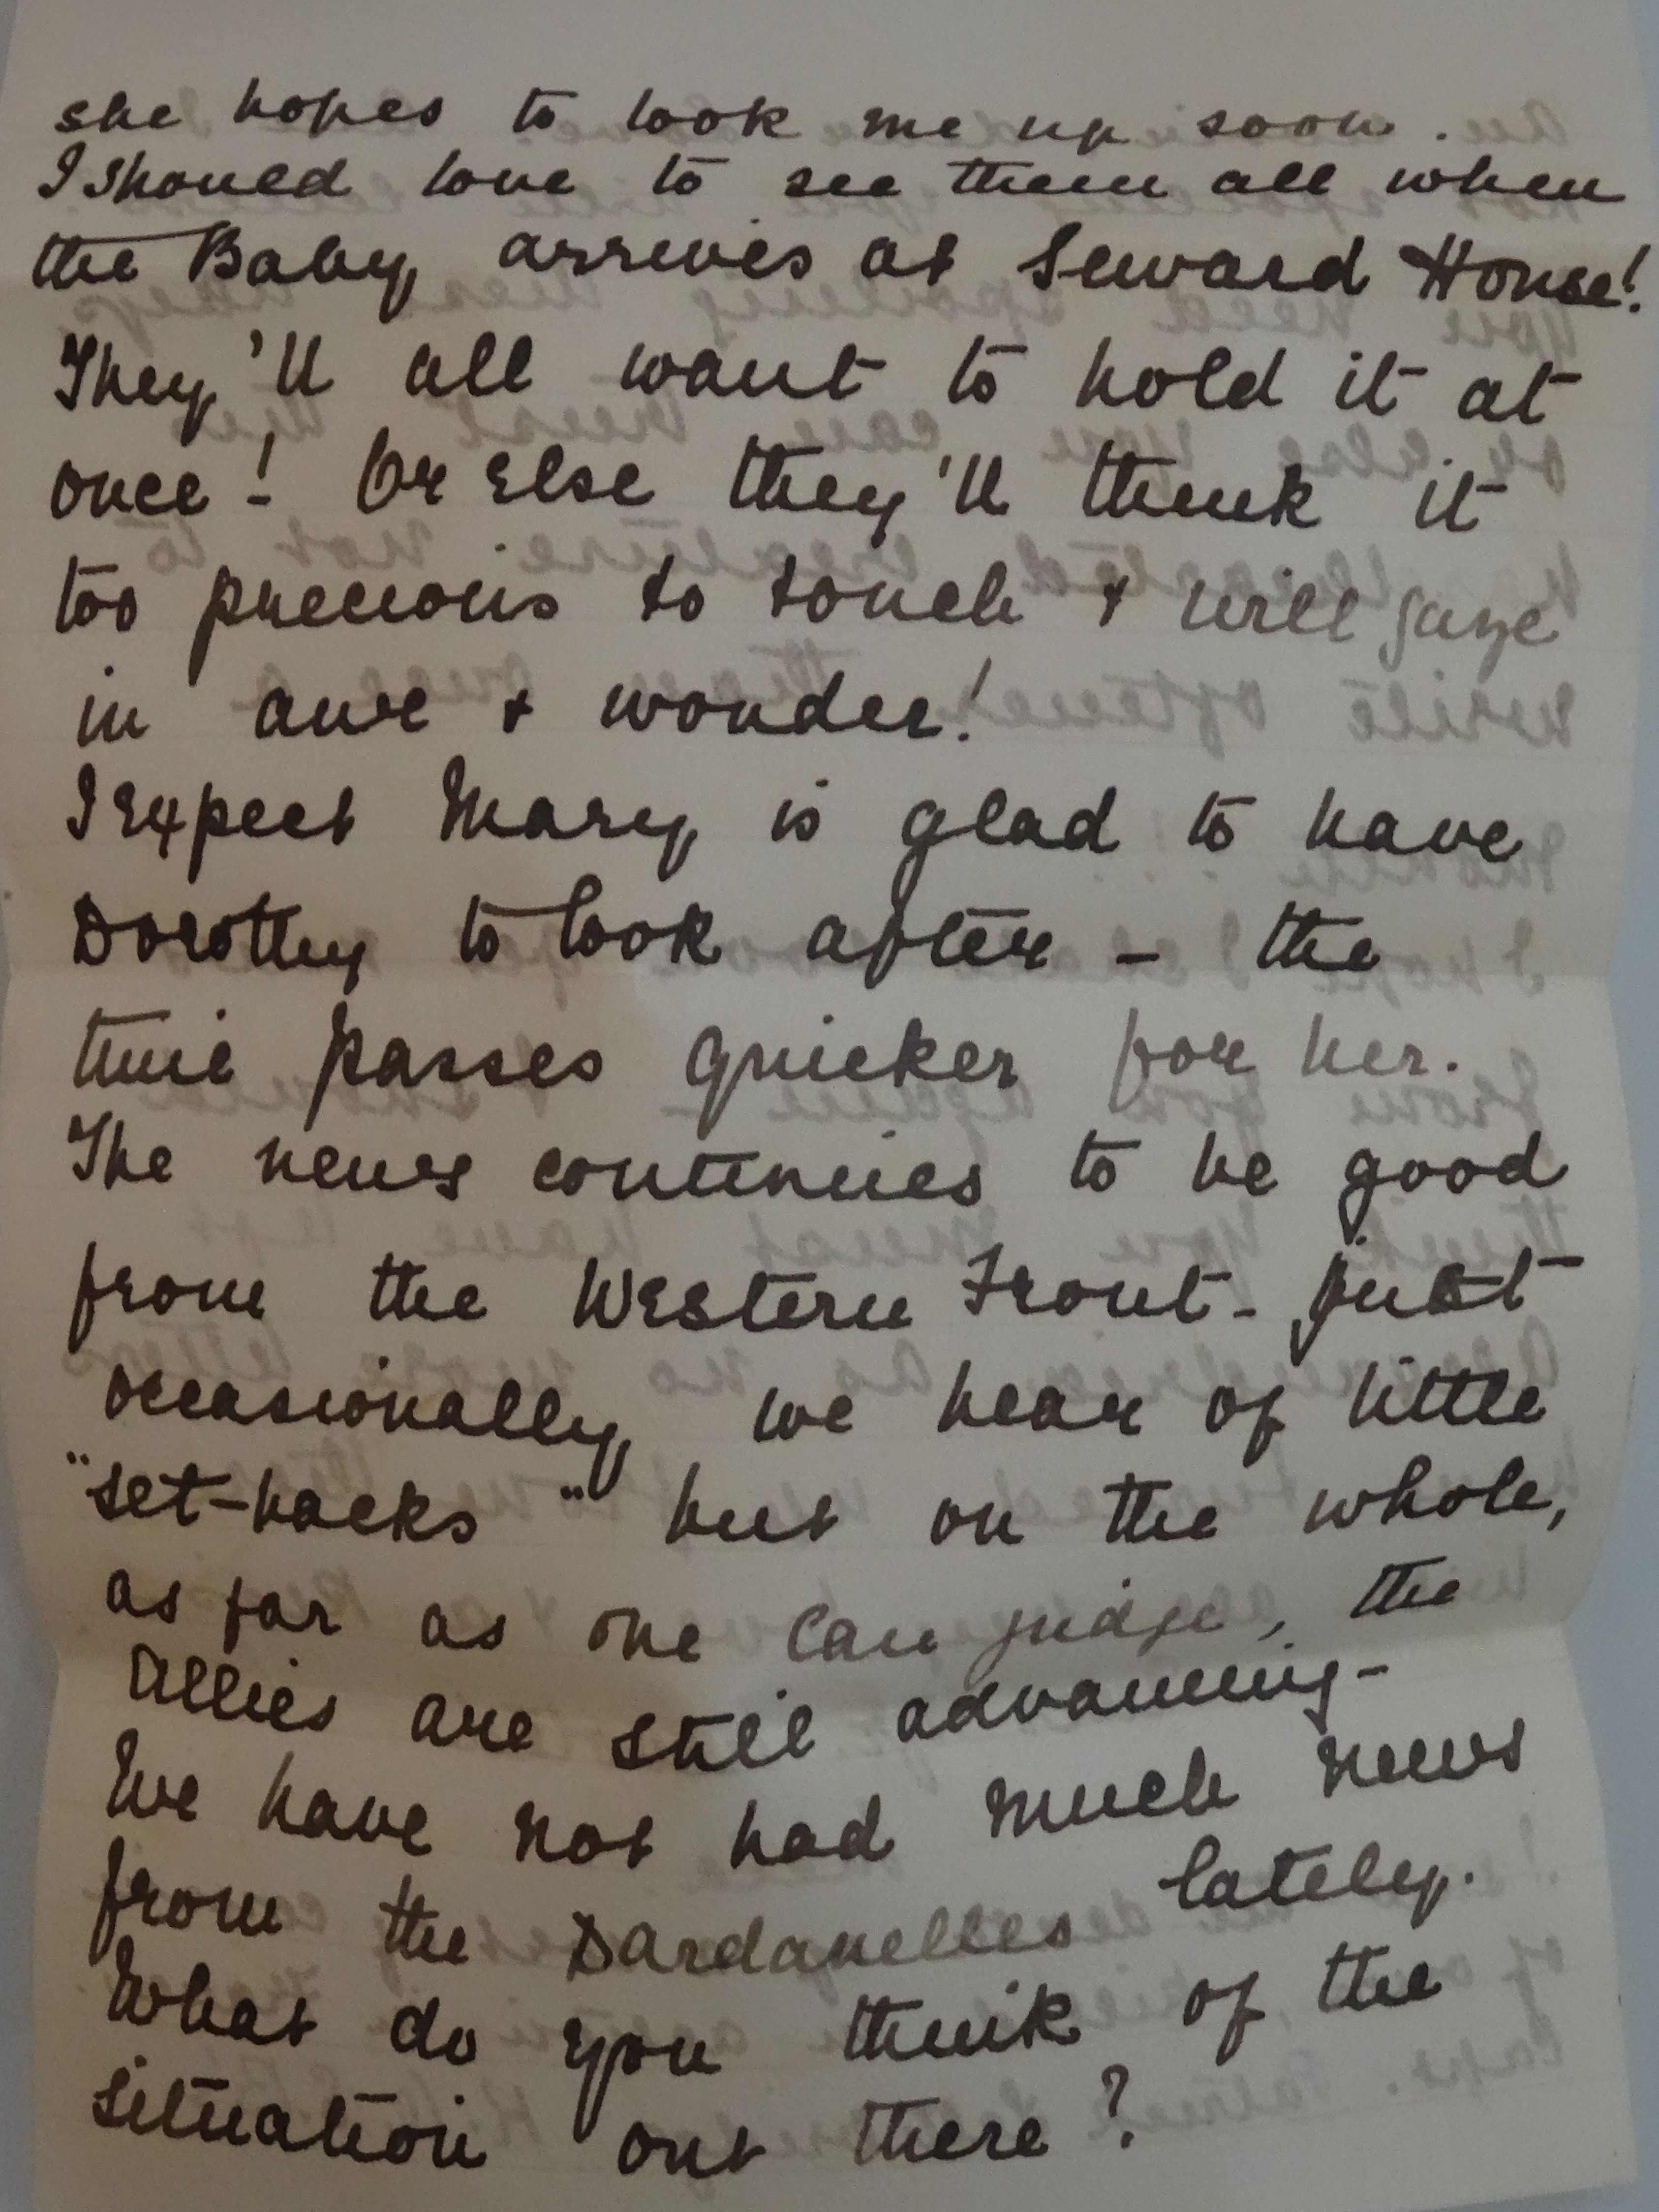 she hopes to look me up soon.
I should love to see them all when
the Baby arrives at Seward House!
They'll all want to hold it at
once! Or Else they'll think it
too precious to touch & will gaze
in awe & wonder!
I Expect Mary is glad to have
Dorothy to look after - the
time passes quicker for her.
The news continues to be good
from the Western Front - just
occasionally we hear of little
"set-backs" but on the whole,
as far as one can judge, the
Allies are still advancing -
We have not had much news
from the Dardanelles lately.
What do you think of the
situation out there?